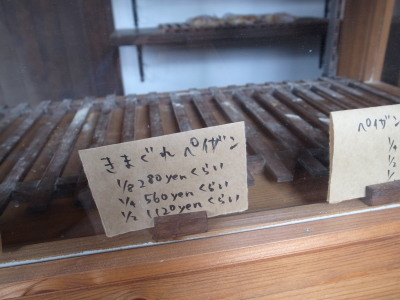 きまぐれ ペイザン
1/8 280yenくらい
1/4 560yenくらい
1/2 1120yenくらい
ペイザン
1/4
1/2